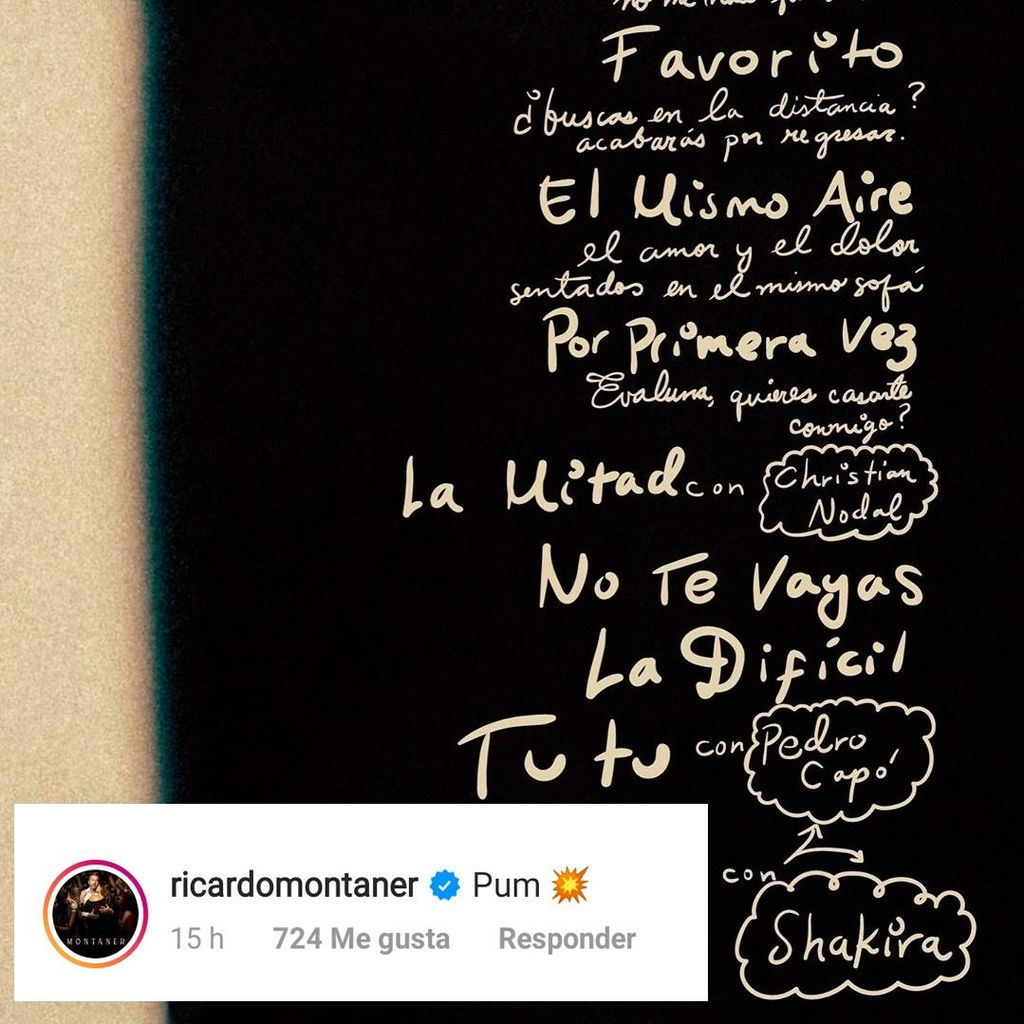 Favorito
¿buscas en la distancia?
acabarás por regresar.
El Mismo Aire
el amor y el dolor
sentados en el mismo sofá
Por Primera Vez
Evaluna, quieres casarte
conmigo?
La Mitad con Christian
Nodal
No Te Vayas
La Difícil
Tutu con Pedro
Capó
con
Shakira
MONTANER
ricardomontaner Pum 💥
15 h 724 Me gusta Responder